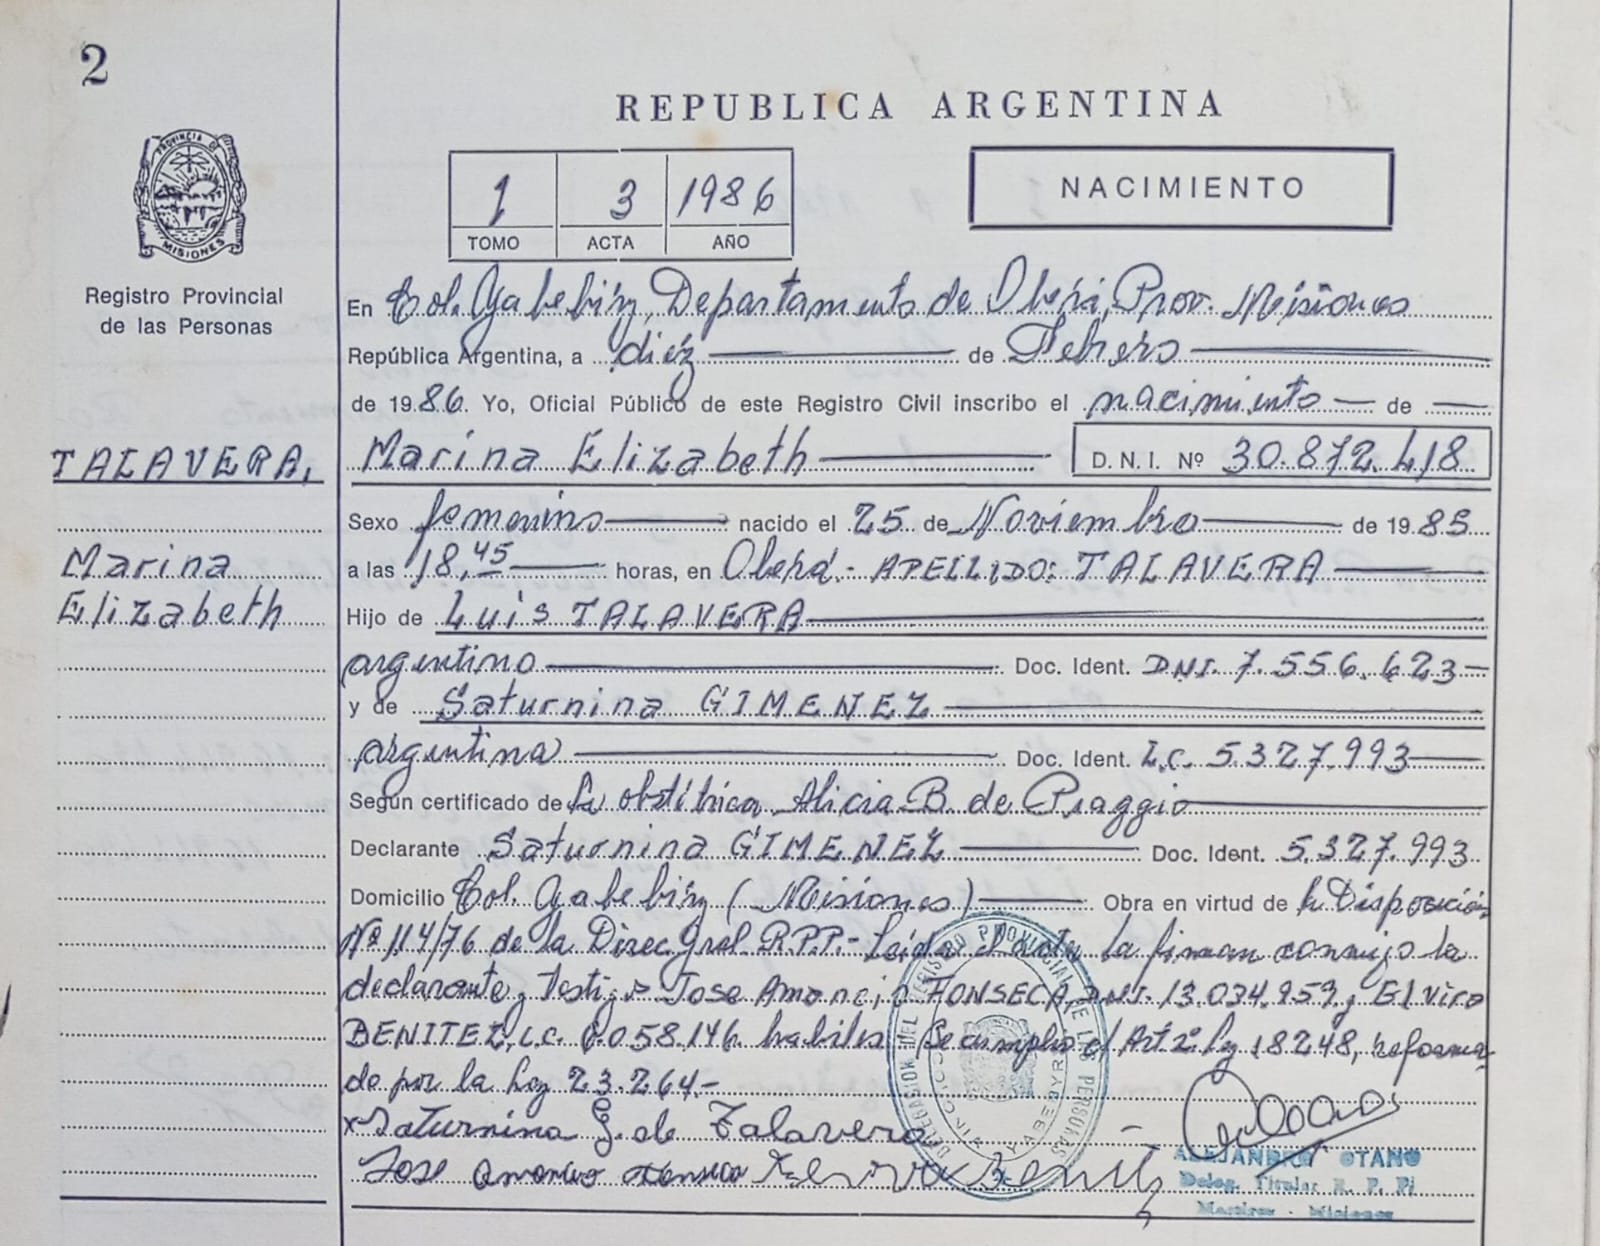 2
REPUBLICA ARGENTINA
PROVINCIA DE
MISIONES
1 3 1986
TOMO ACTA AÑO
NACIMIENTO
Registro Provincial
de las Personas
En Col. Yabebiry, Departamento de Oberá, Prov. Misiones
República Argentina, a diéz de Febrero
de 1986. Yo, Oficial Público de este Registro Civil inscribo el nacimiento de
TALAVERA, Marina Elizabeth D.N.I. Nº 30.872.418
Sexo femenino nacido el 25 de Noviembre de 1985
Marina a las 18,45 horas, en Oberá.- APELLIDO: TALAVERA
Elizabeth Hijo de Luis TALAVERA
argentino Doc. Ident. DNI. 7.556.623
y de Saturnina GIMENEZ
argentina Doc. Ident. L.C. 5.327.993
Según certificado de la obstétrica Alicia B. de Piaggio
Declarante Saturnina GIMENEZ Doc. Ident. 5.327.993
Domicilio Col. Yabebiry (Misiones) Obra en virtud de la Disposición
Nº 114/76 de la Direc. Gral R.P.P.- Leida el acta la firman conmigo la
declarante y Testigos Jose Amancio FONSECA DNI. 13.034.959 y Elvira
BENITEZ, L.C. 6.058.146 habiles. Se cumplio c/ Art 2º Ley 18248, reforma
do por la Ley 23.264-
x Saturnina G. de Talavera
Jose Amancio Fonseca Elvira Benitez
DELEGACION DEL REGISTRO PROVINCIAL DE LAS PERSONAS
YABEBYRY
ALEJANDRO OTANO
Deleg. Titular R. P. P.
Martires - Misiones